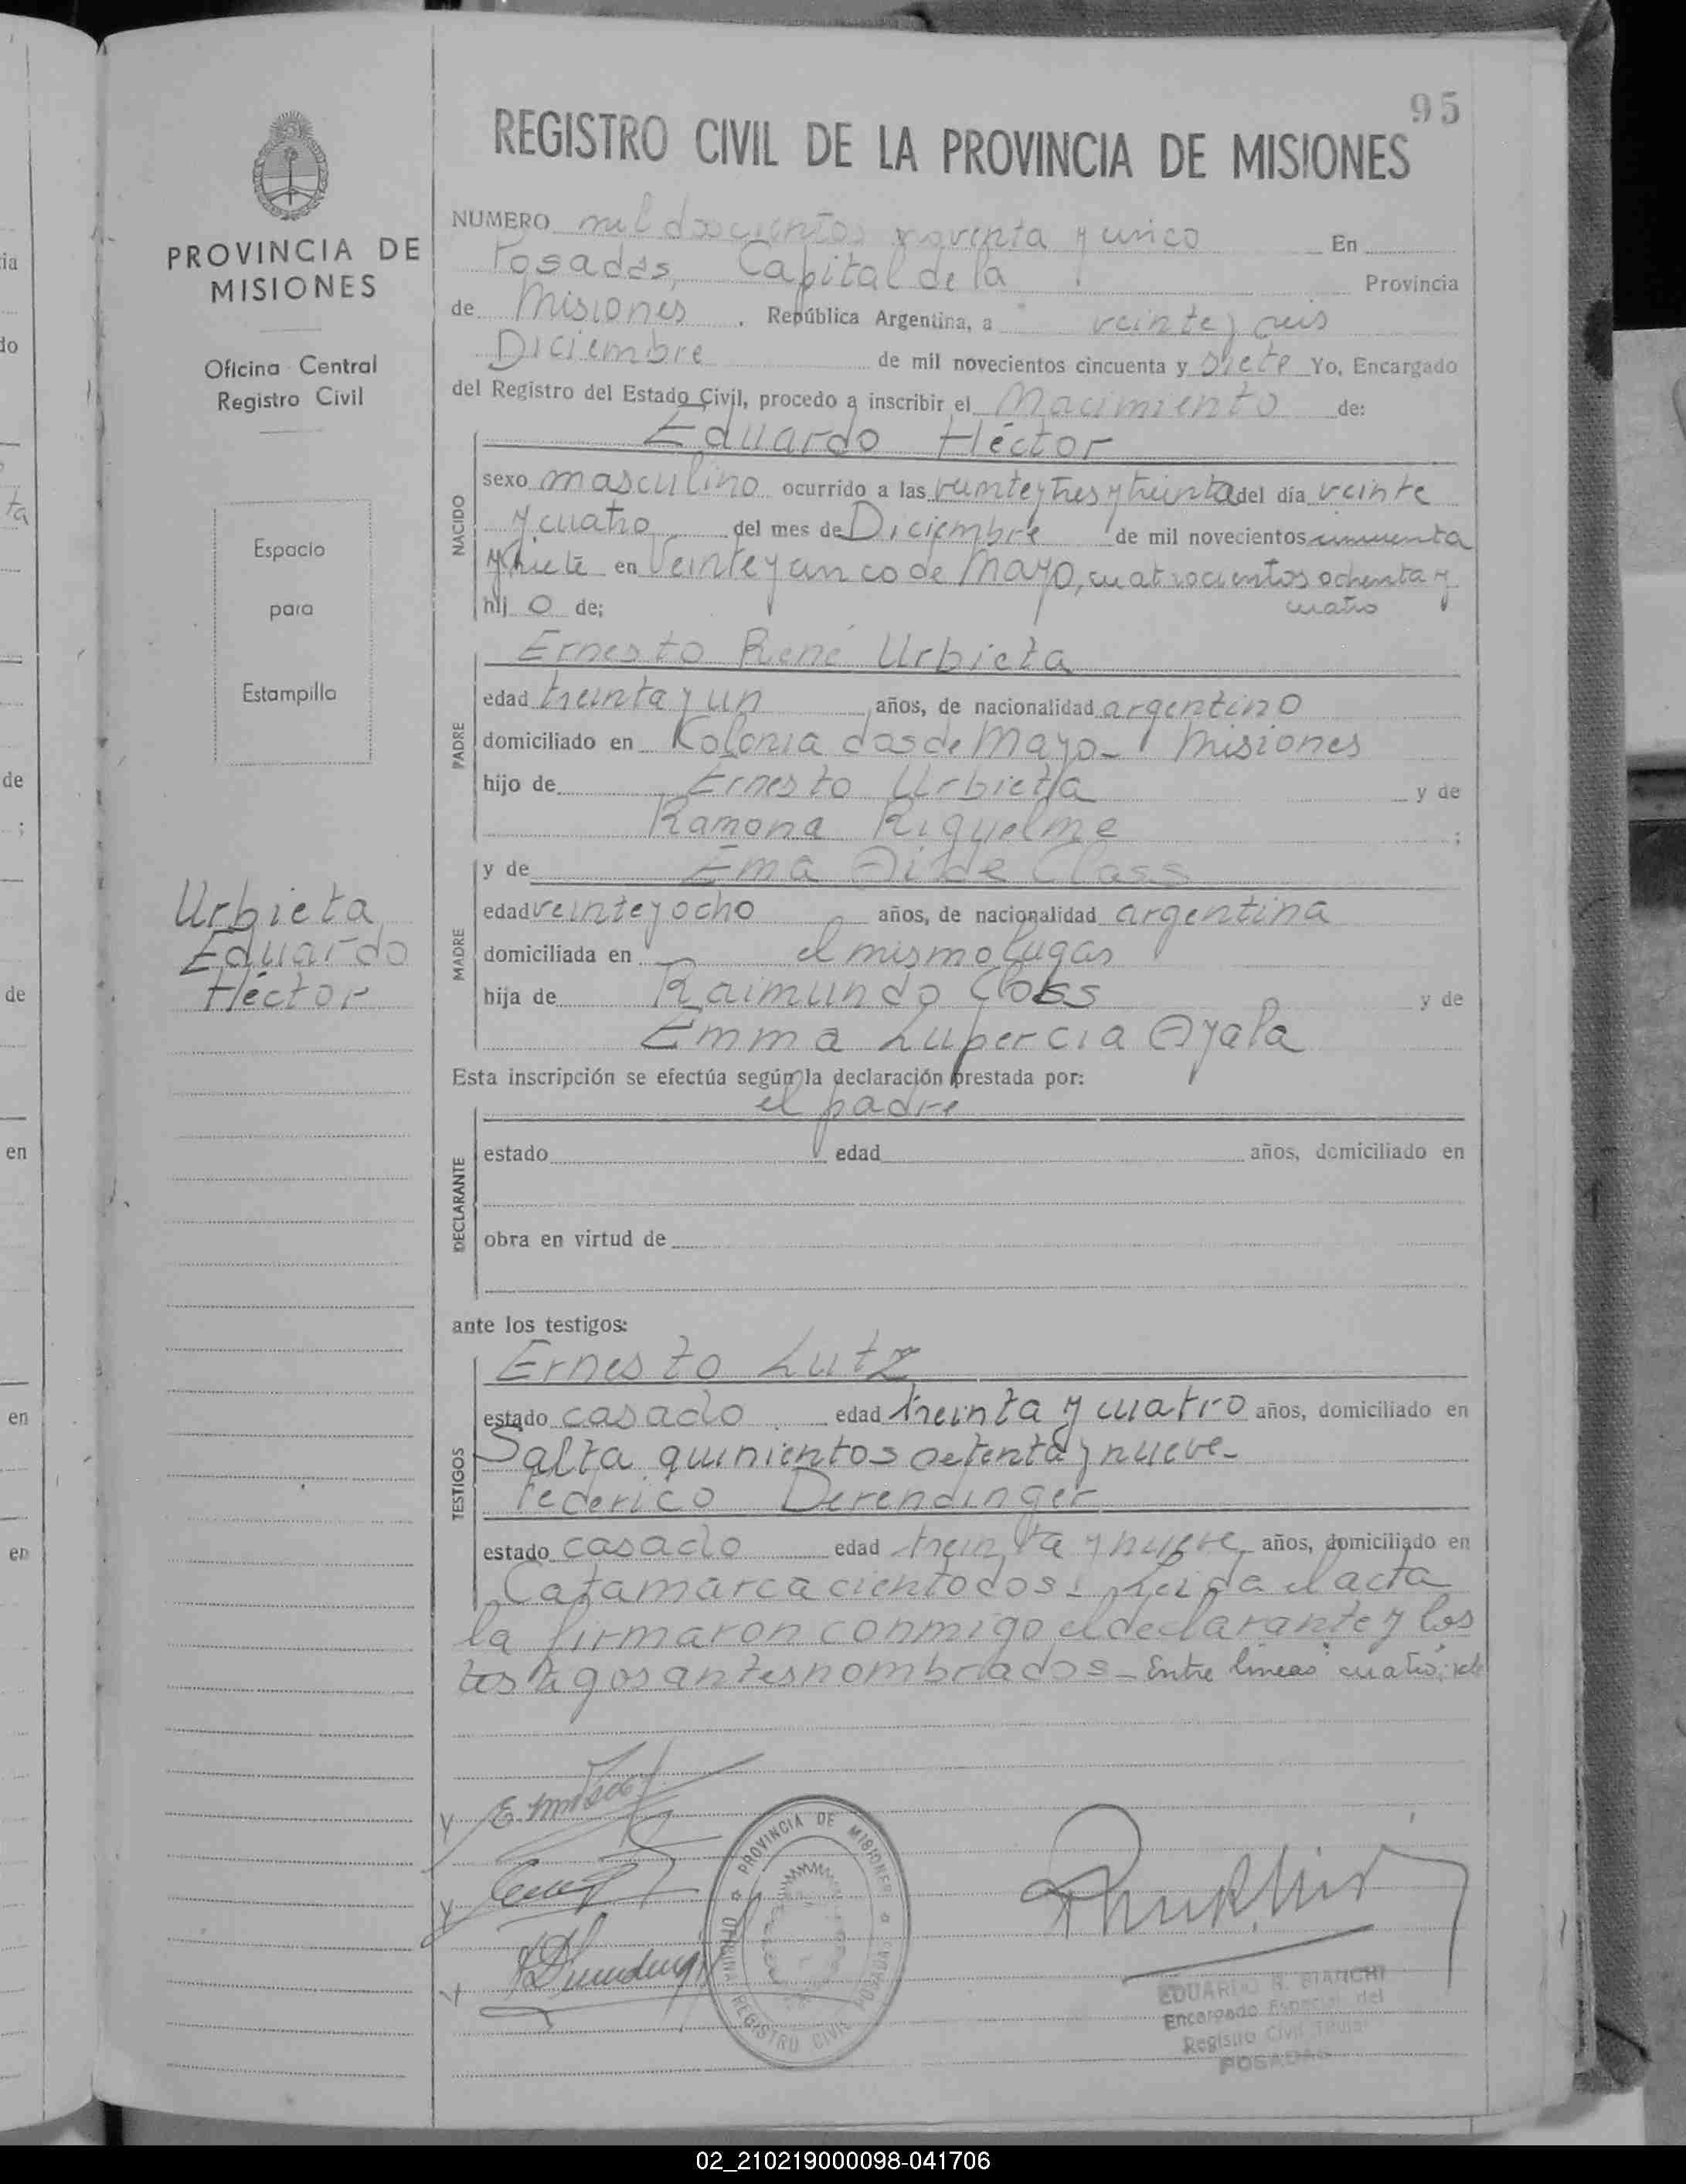 95
REGISTRO CIVIL DE LA PROVINCIA DE MISIONES
PROVINCIA DE
MISIONES
Oficina Central
Registro Civil
Espacio
para
Estampilla
Urbieta
Eduardo
Héctor
NUMERO mil doscientos noventa y cinco En
Posadas, Capital de la Provincia
de Misiones, República Argentina, a veinte y seis
Diciembre de mil novecientos cincuenta y siete Yo, Encargado
del Registro del Estado Civil, procedo a inscribir el Nacimiento de:
Eduardo Héctor
NACIDO
sexo masculino ocurrido a las veinte y tres y treinta del día veinte
y cuatro del mes de Diciembre de mil novecientos cincuenta
y siete en Veinte y cinco de Mayo, cuatrocientos ochenta y
cuatro
hij o de;
PADRE
Ernesto René Urbieta
edad treinta y un años, de nacionalidad argentino
domiciliado en Kolonia dos de Mayo - Misiones
hijo de Ernesto Urbieta y de
Ramona Riquelme ;
MADRE
y de Ema Aide Closs
edad veinte y ocho años, de nacionalidad argentina
domiciliada en el mismo lugar
hija de Raimundo Closs y de
Emma Lupercia Ayala
Esta inscripción se efectúa según la declaración prestada por:
el padre
DECLARANTE
estado edad años, domiciliado en
obra en virtud de
ante los testigos:
TESTIGOS
Ernesto Lutz
estado casado edad treinta y cuatro años, domiciliado en
Salta quinientos setenta y nueve-
Federico Derendinger
estado casado edad treinta y nueve años, domiciliado en
Catamarca ciento dos. Leida el acta
la firmaron conmigo el declarante y los
testigos antes nombrados - Entre lineas cuatro: vale
PROVINCIA DE MISIONES
REGISTRO CIVIL POSADAS
EDUARDO R. BIANCHI
Encargado Especial del
Registro Civil Titular
POSADAS
02_210219000098-041706